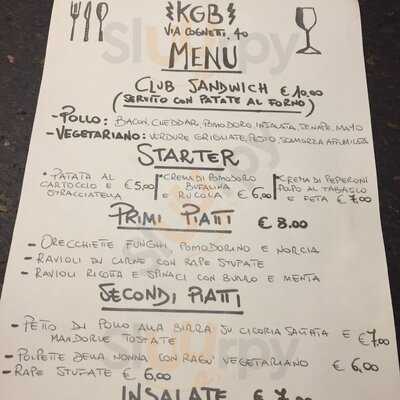 KGB
VIA COGNETTI, 40
MENU
CLUB SANDWICH € 10,00
(SERVITO CON PATATE AL FORNO)
- POLLO: BACON, CHEDDAR, POMODORO, INSALATA, SENAPE, MAYO
- VEGETARIANO: VERDURE GRIGLIATE, PESTO, SCAMORZA AFFUMICATA
STARTER
• PATATA AL CARTOCCIO E STRACCIATELLA €5,00
CREMA DI POMODORO BUFALINA E RUCOLA € 6,00
CREMA DI PEPERONI POLPO AL TABASCO E FETA € 7,00
PRIMI PIATTI € 8.00
- ORECCHIETTE FUNGHI, POMODORINO E NORCIA
- RAVIOLI DI CARNE CON RAPE STUFATE
- RAVIOLI RICOTTA E SPINACI CON BURRO E MENTA
SECONDI PIATTI
- PETTO DI POLLO ALLA BIRRA SU CICORIA SALTATA E
MANDORLE TOSTATE €7,00
- POLPETTE DELLA NONNA CON RAGÙ VEGETARIANO € 6,00
- RAPE STUFATE € 6,00
INSALATE €
Sluurpy